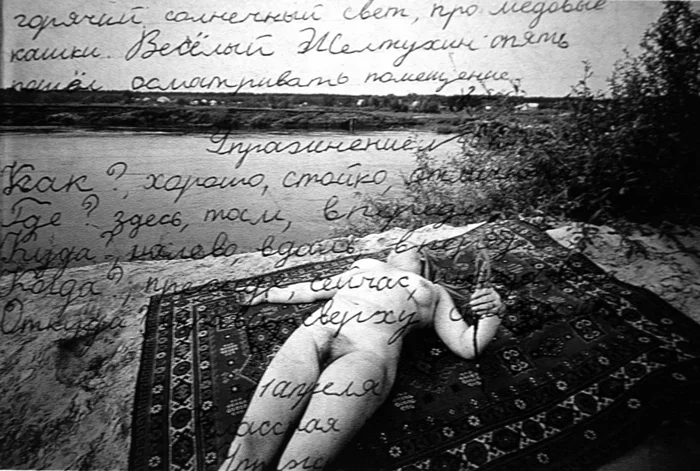 горячий солнечный свет, про медовые
кашки. Весёлый Желтухин опять
пошёл осматривать помещение
Упражнением
Как?, хорошо, стойко, отлично
Где? здесь, там, впереди
Куда?, налево, вдаль, вперёд
Когда?, прежде, сейчас,
Откуда? сверху
1 апреля
Классная